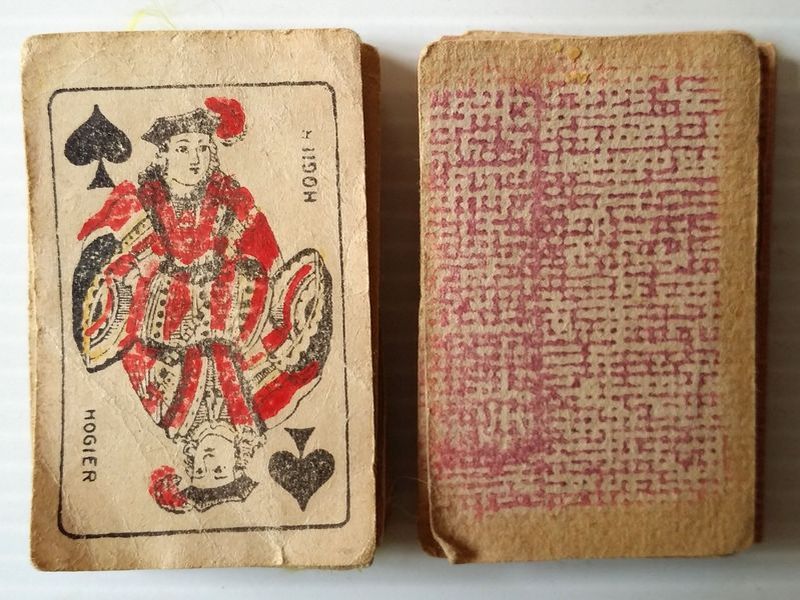 HOGIER
HOGIER